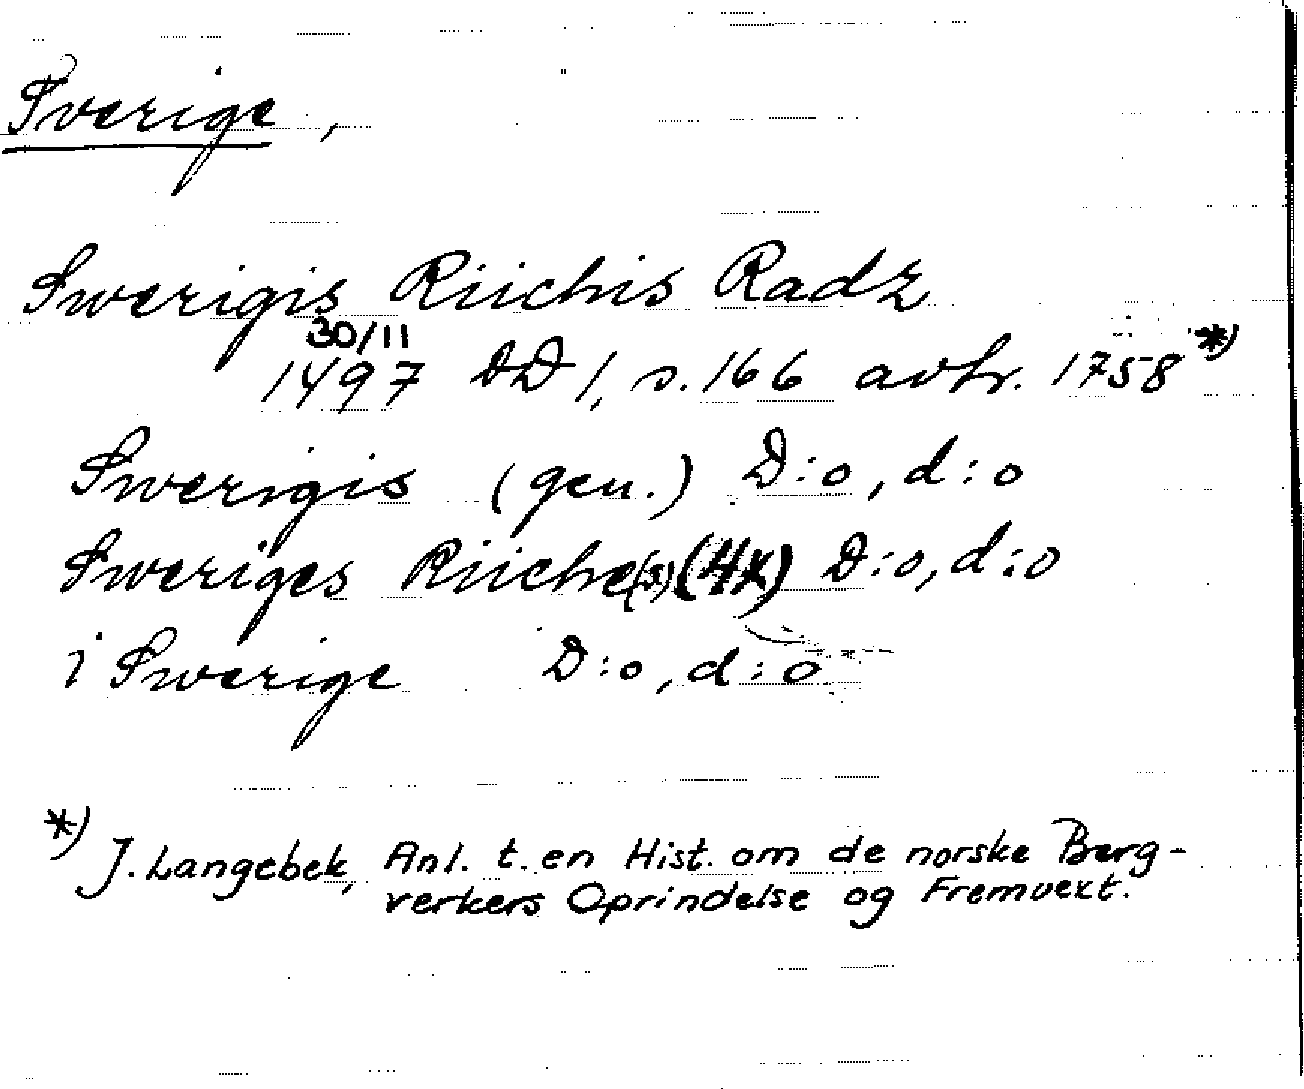 Sverige,
Swerigis Riichis Radz
30/11
1497 DD 1, s. 166 avhr. 1758 *)
Swerigis (gen.) D:o, d:o
Sweriges Riiche(s) (4x) D:o, d:o
i Swerige D:o, d:o
*) J. Langebek, Anl. t. en Hist. om de norske Berg-
verkers Oprindelse og Fremvext.